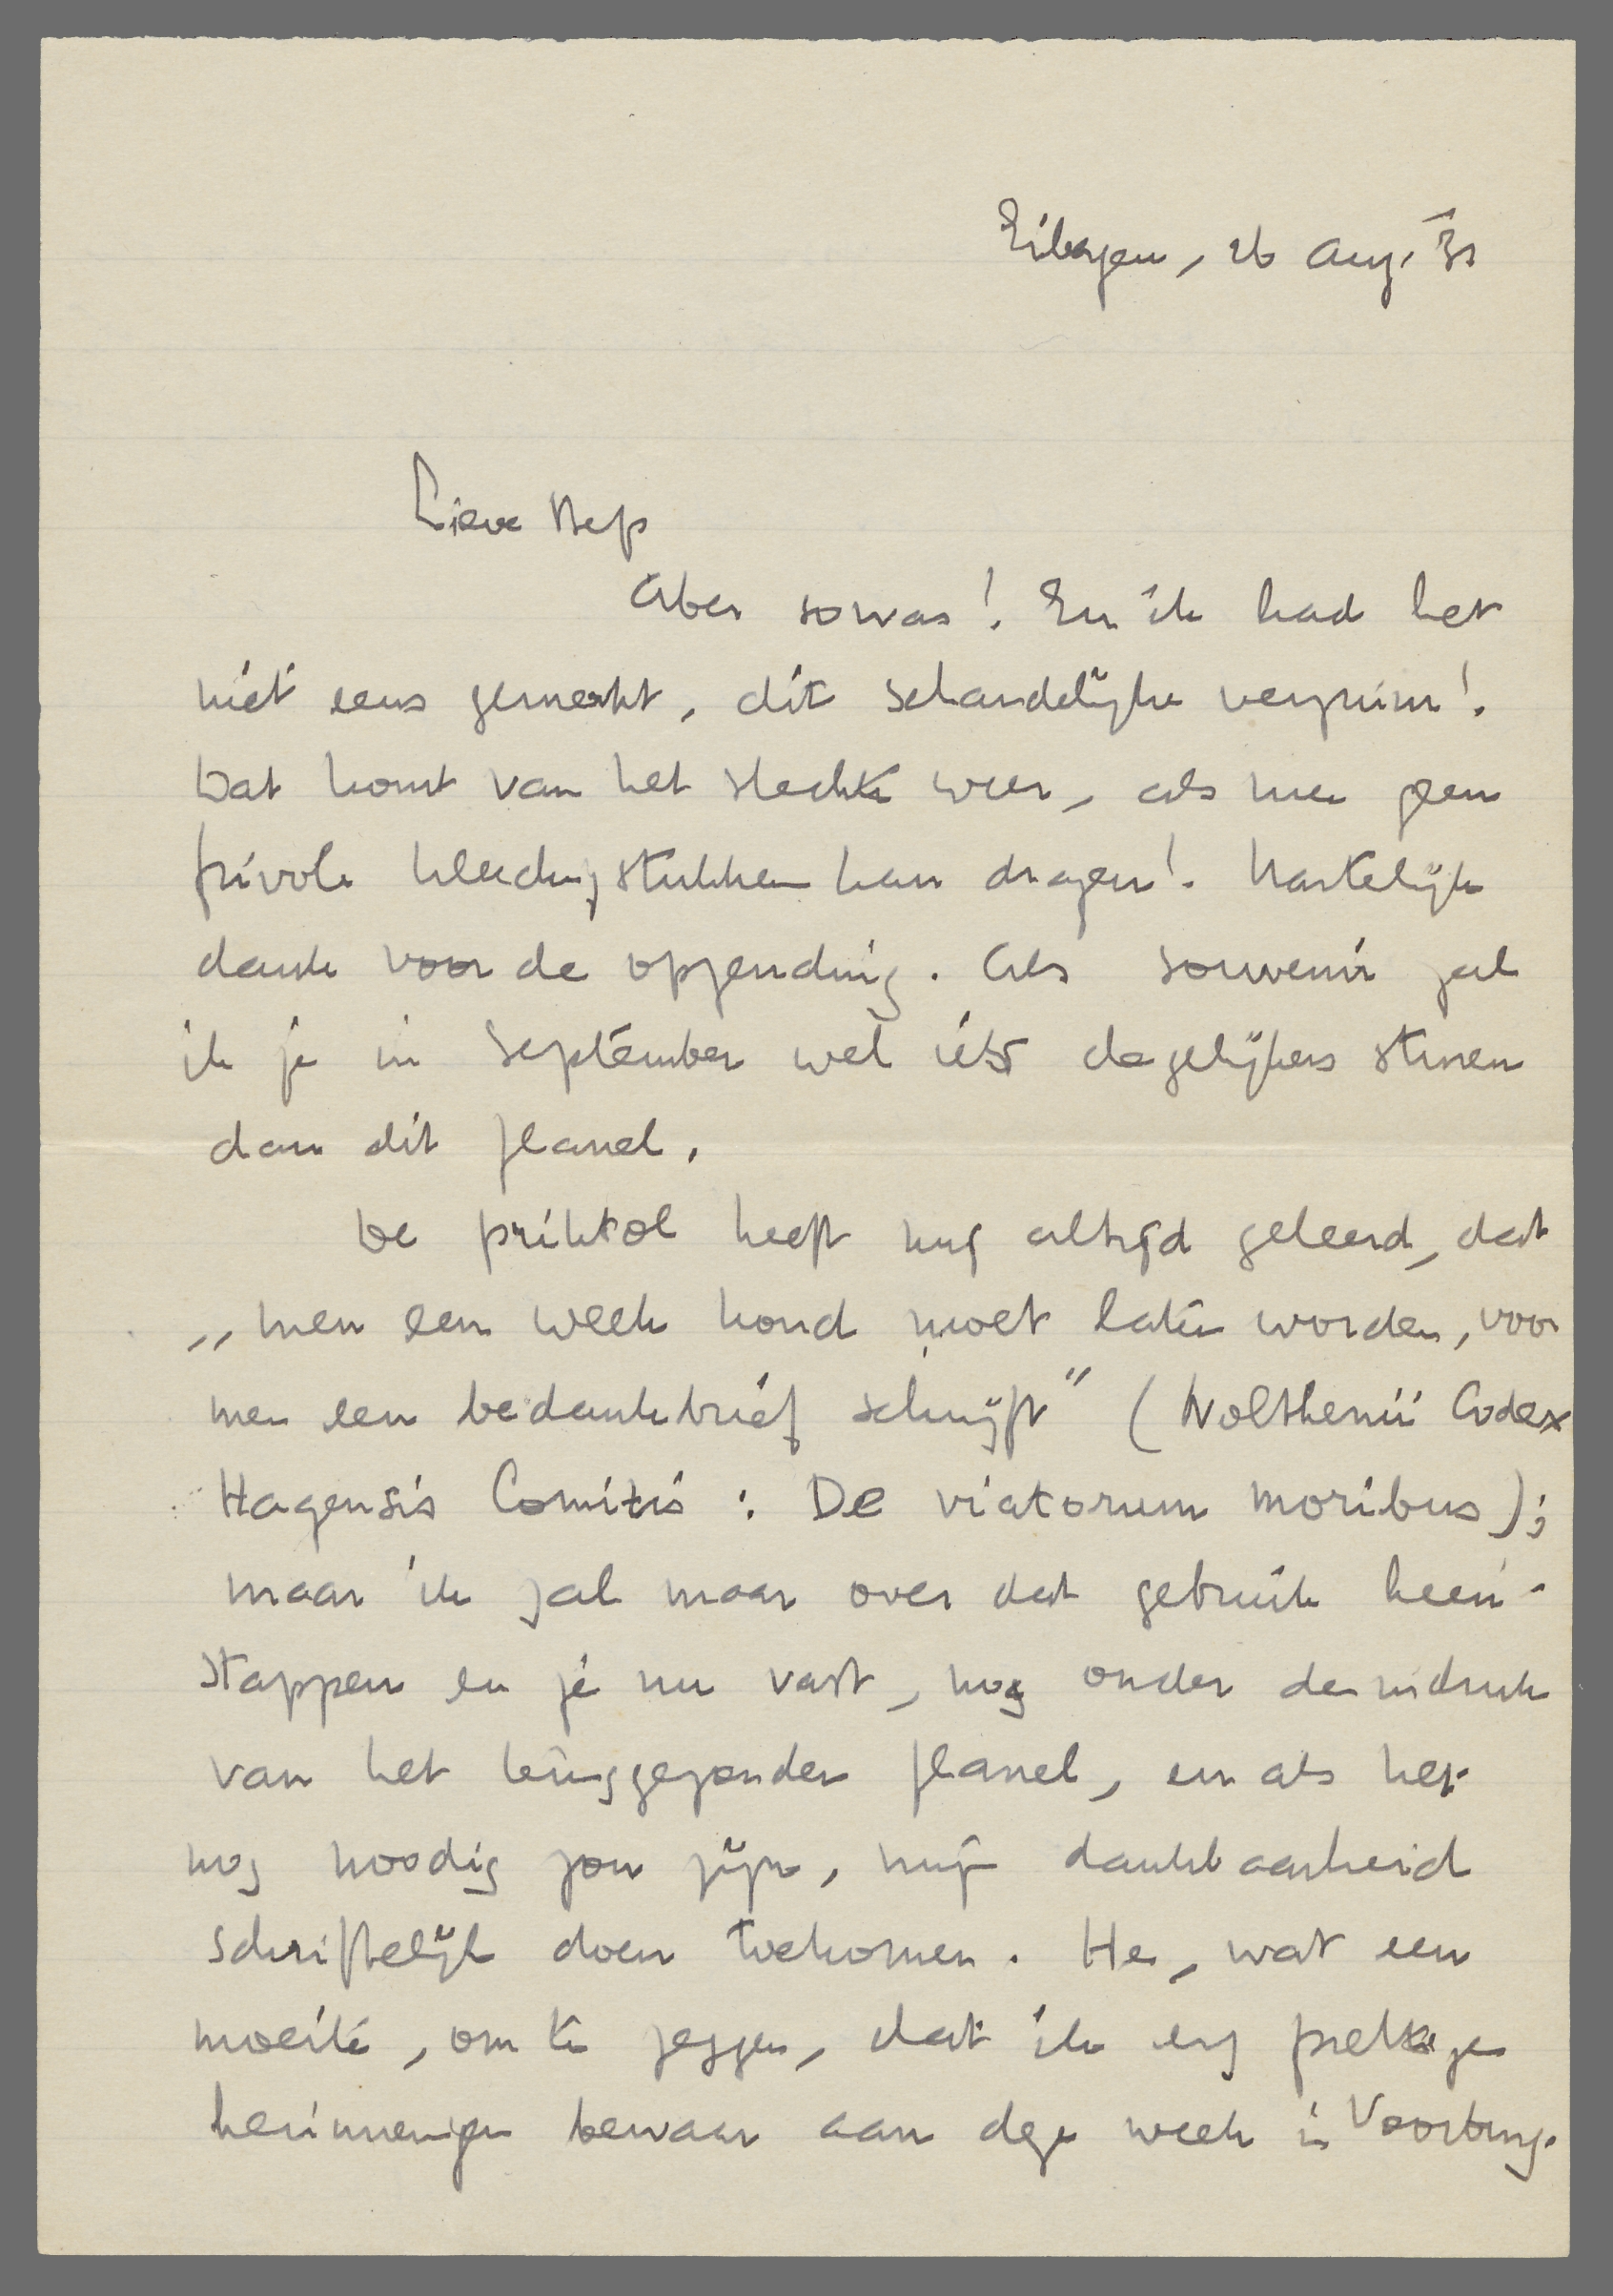 Eibergen, 26 Aug. '31
Lieve Bep
Aber sowas! En ik had het
niet eens gemerkt, dit schandelijke verzuim!
Dat komt van het slechte weer, als men geen
frivole kleedingstukken kan dragen! Hartelijk
dank voor de opzending. Als souvenir zal
ik je in September wel iets degelijkers sturen
dan dit flanel.
De priktol heeft mij altijd geleerd, dat
„men een week koud moet laten worden, voor
men een bedankbrief schrijft" (Nolthenii Codex
Hagensis Comitis: De viatorum moribus);
maar ik zal maar over dat gebruik heen-
stappen en je nu vast, nog onder de indruk
van het teruggezonden flanel, en als het
nog noodig zou zijn, mijn dankbaarheid
schriftelijk doen toekomen. He, wat een
moeite, om te zeggen, dat ik erg prettige
herinneringen bewaar aan deze week in Voorburg.